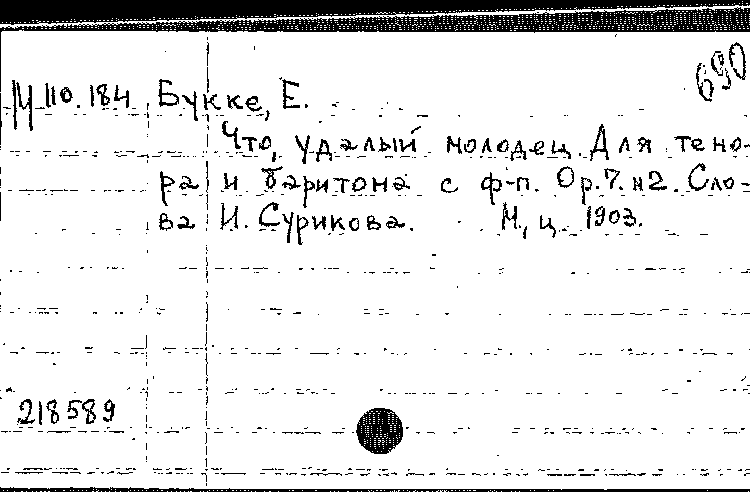 690
М 110.184 Букке, Е.
Что, удалый молодец. Для тено-
ра и баритона с ф-п. Ор.7. н2. Сло-
ва И. Сурикова. М., ц. 1903.
218589